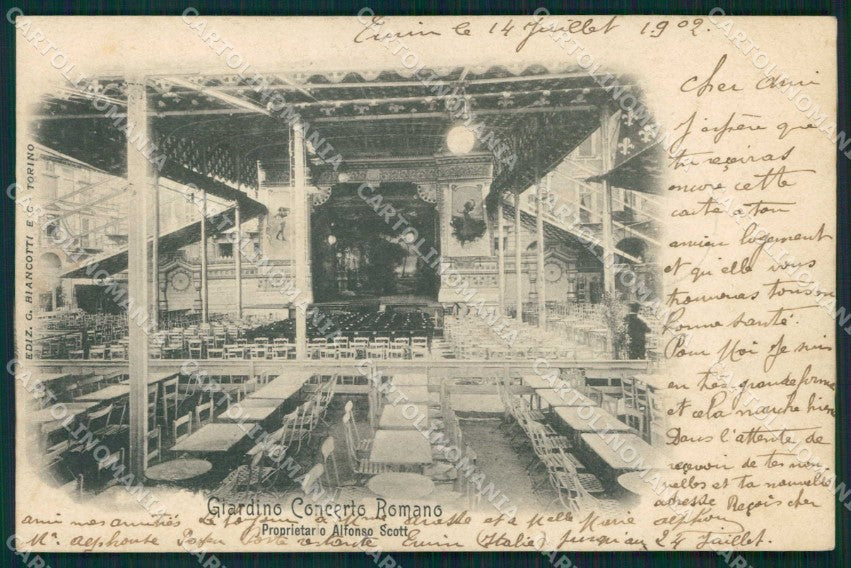 Turin le 14 Juillet 1902.
Cher ami
J'espère que
tu reçeviras
encore cette
carte à ton
ancien logement
et qu'elle vous
trouveras tous en
bonne santé.
Pour Moi Je suis
en très grande forme
et cela marche bien
Dans l'attente de
recevoir de tes nou
velles et ta nouvelle
adresse Reçois cher
ami mes amitiés et à Melle Marie alphonse
Mr. alphonse poste restante Turin (Italie) jusqu'au 24 Juillet.
EDIZ. G. BIANCOTTI E C. - TORINO
Giardino Concerto Romano
Proprietario Alfonso Scott
CARTOLINOMANIA